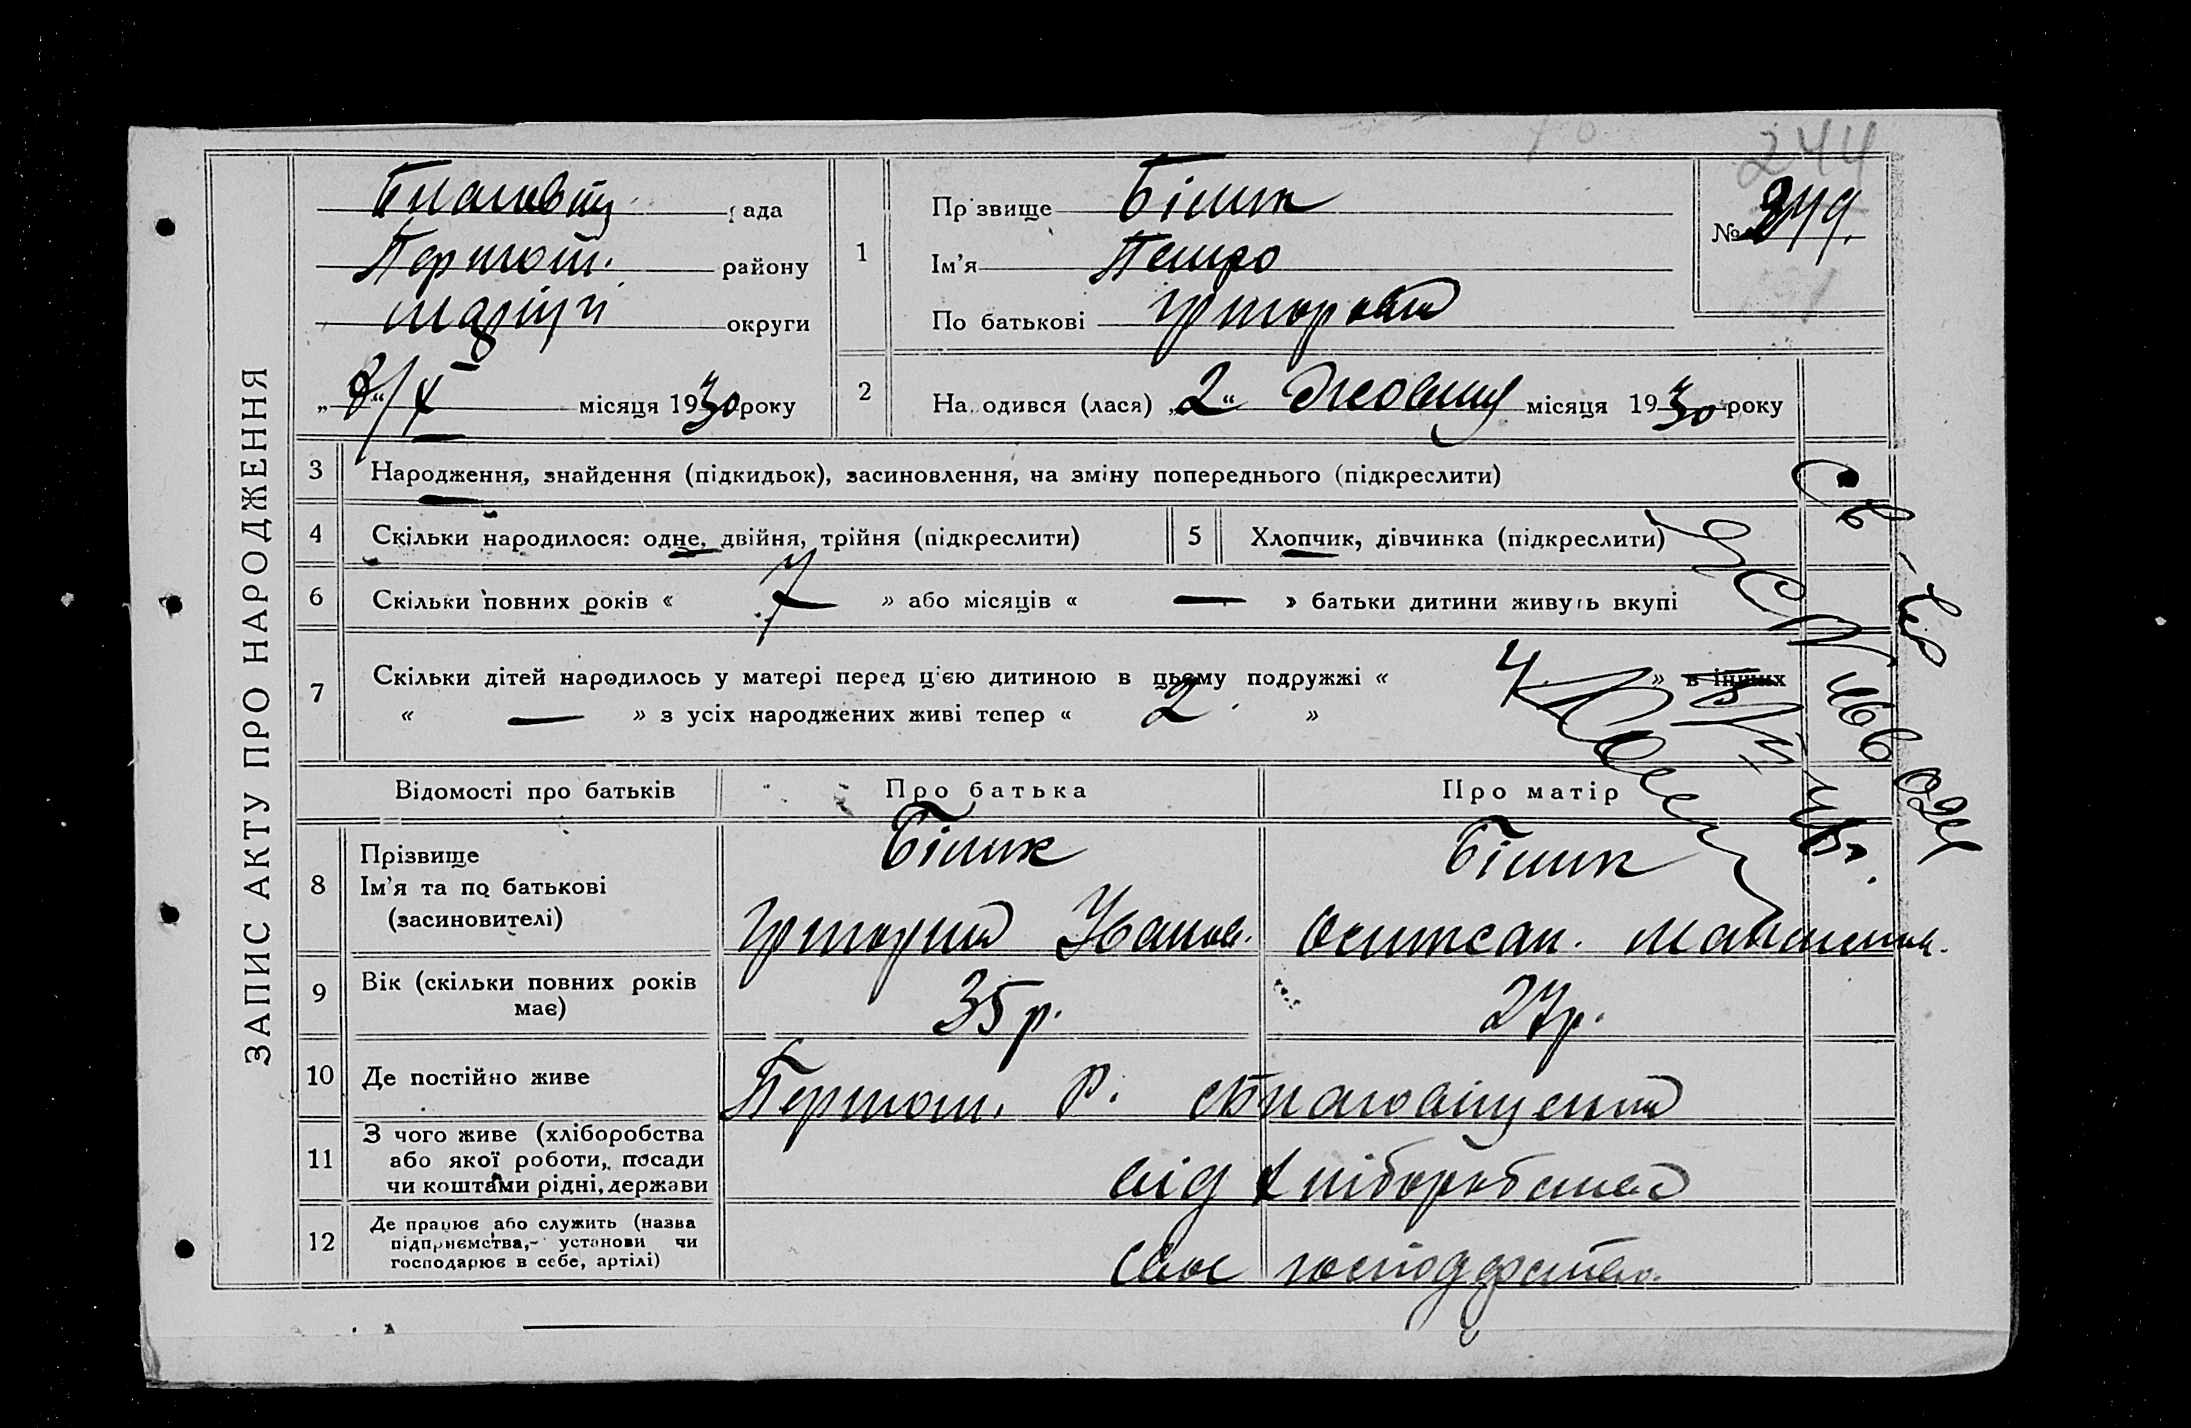 ЗАПИС АКТУ ПРО НАРОДЖЕННЯ
244
рада
району
округи
8/X місяця 1930 року
1
Прізвище Білик
Ім'я Петро
По батькові
№ 249.
2
Народився (лася) „2“ Жовтня місяця 1930 року
3 Народження, знайдення (підкидьок), засиновлення, на зміну попереднього (підкреслити)
4 Скільки народилося: одне, двійня, трійня (підкреслити)
5 Хлопчик, дівчинка (підкреслити)
6 Скільки повних років « 7 » або місяців « — » батьки дитини живуть вкупі
7 Скільки дітей народилось у матері перед ц'єю дитиною в цьому подружжі « 4 » в інших
« — » з усіх народжених живі тепер « 2 »
Відомості про батьків Про батька Про матір
8 Прізвище
Ім'я та по батькові
(засиновителі)
Білик
Іванов.
Білик
9 Вік (скільки повних років
має)
35 р.
27 р.
10 Де постійно живе
Р.
11 З чого живе (хліборобства
або якої роботи, посади
чи коштами рідні, держави
від хліборобства
12 Де працює або служить (назва
підприємства, установи чи
господарює в себе, артілі)
своє господарство.